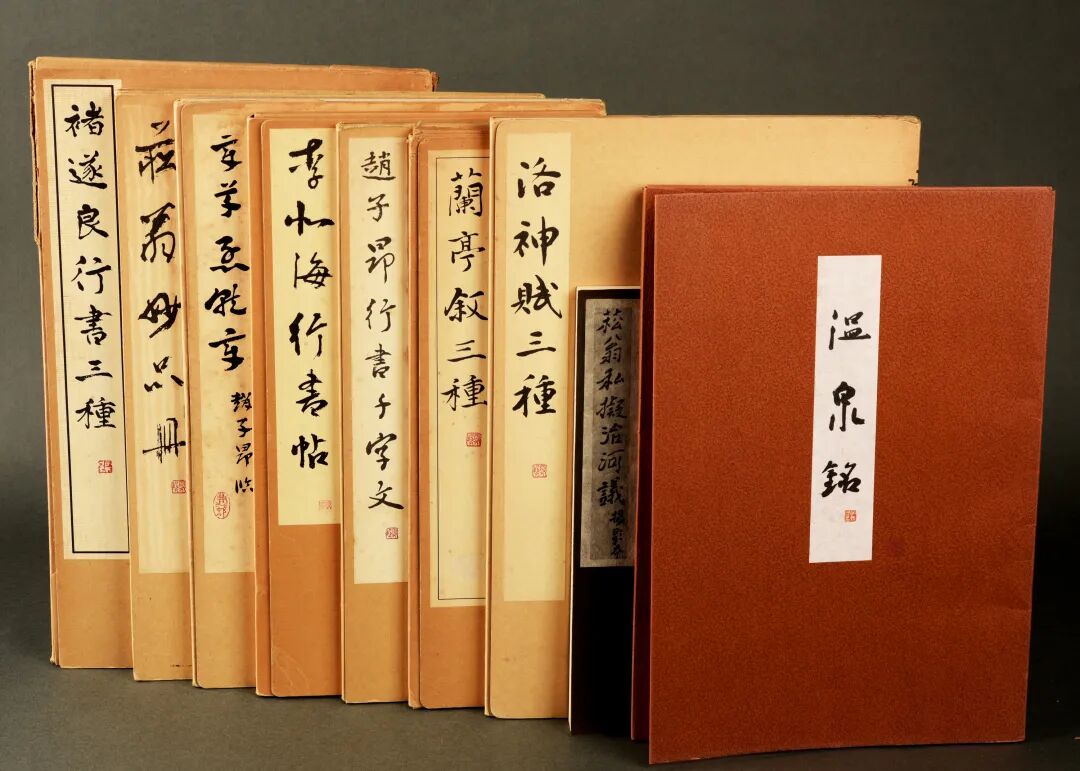 褚遂良行書三種
翁妙品冊
章草急就章
趙子昂臨
李北海行書帖
趙子昂行書千字文
蘭亭叙三種
洛神賦三種
菘翁私擬治河議
温泉銘